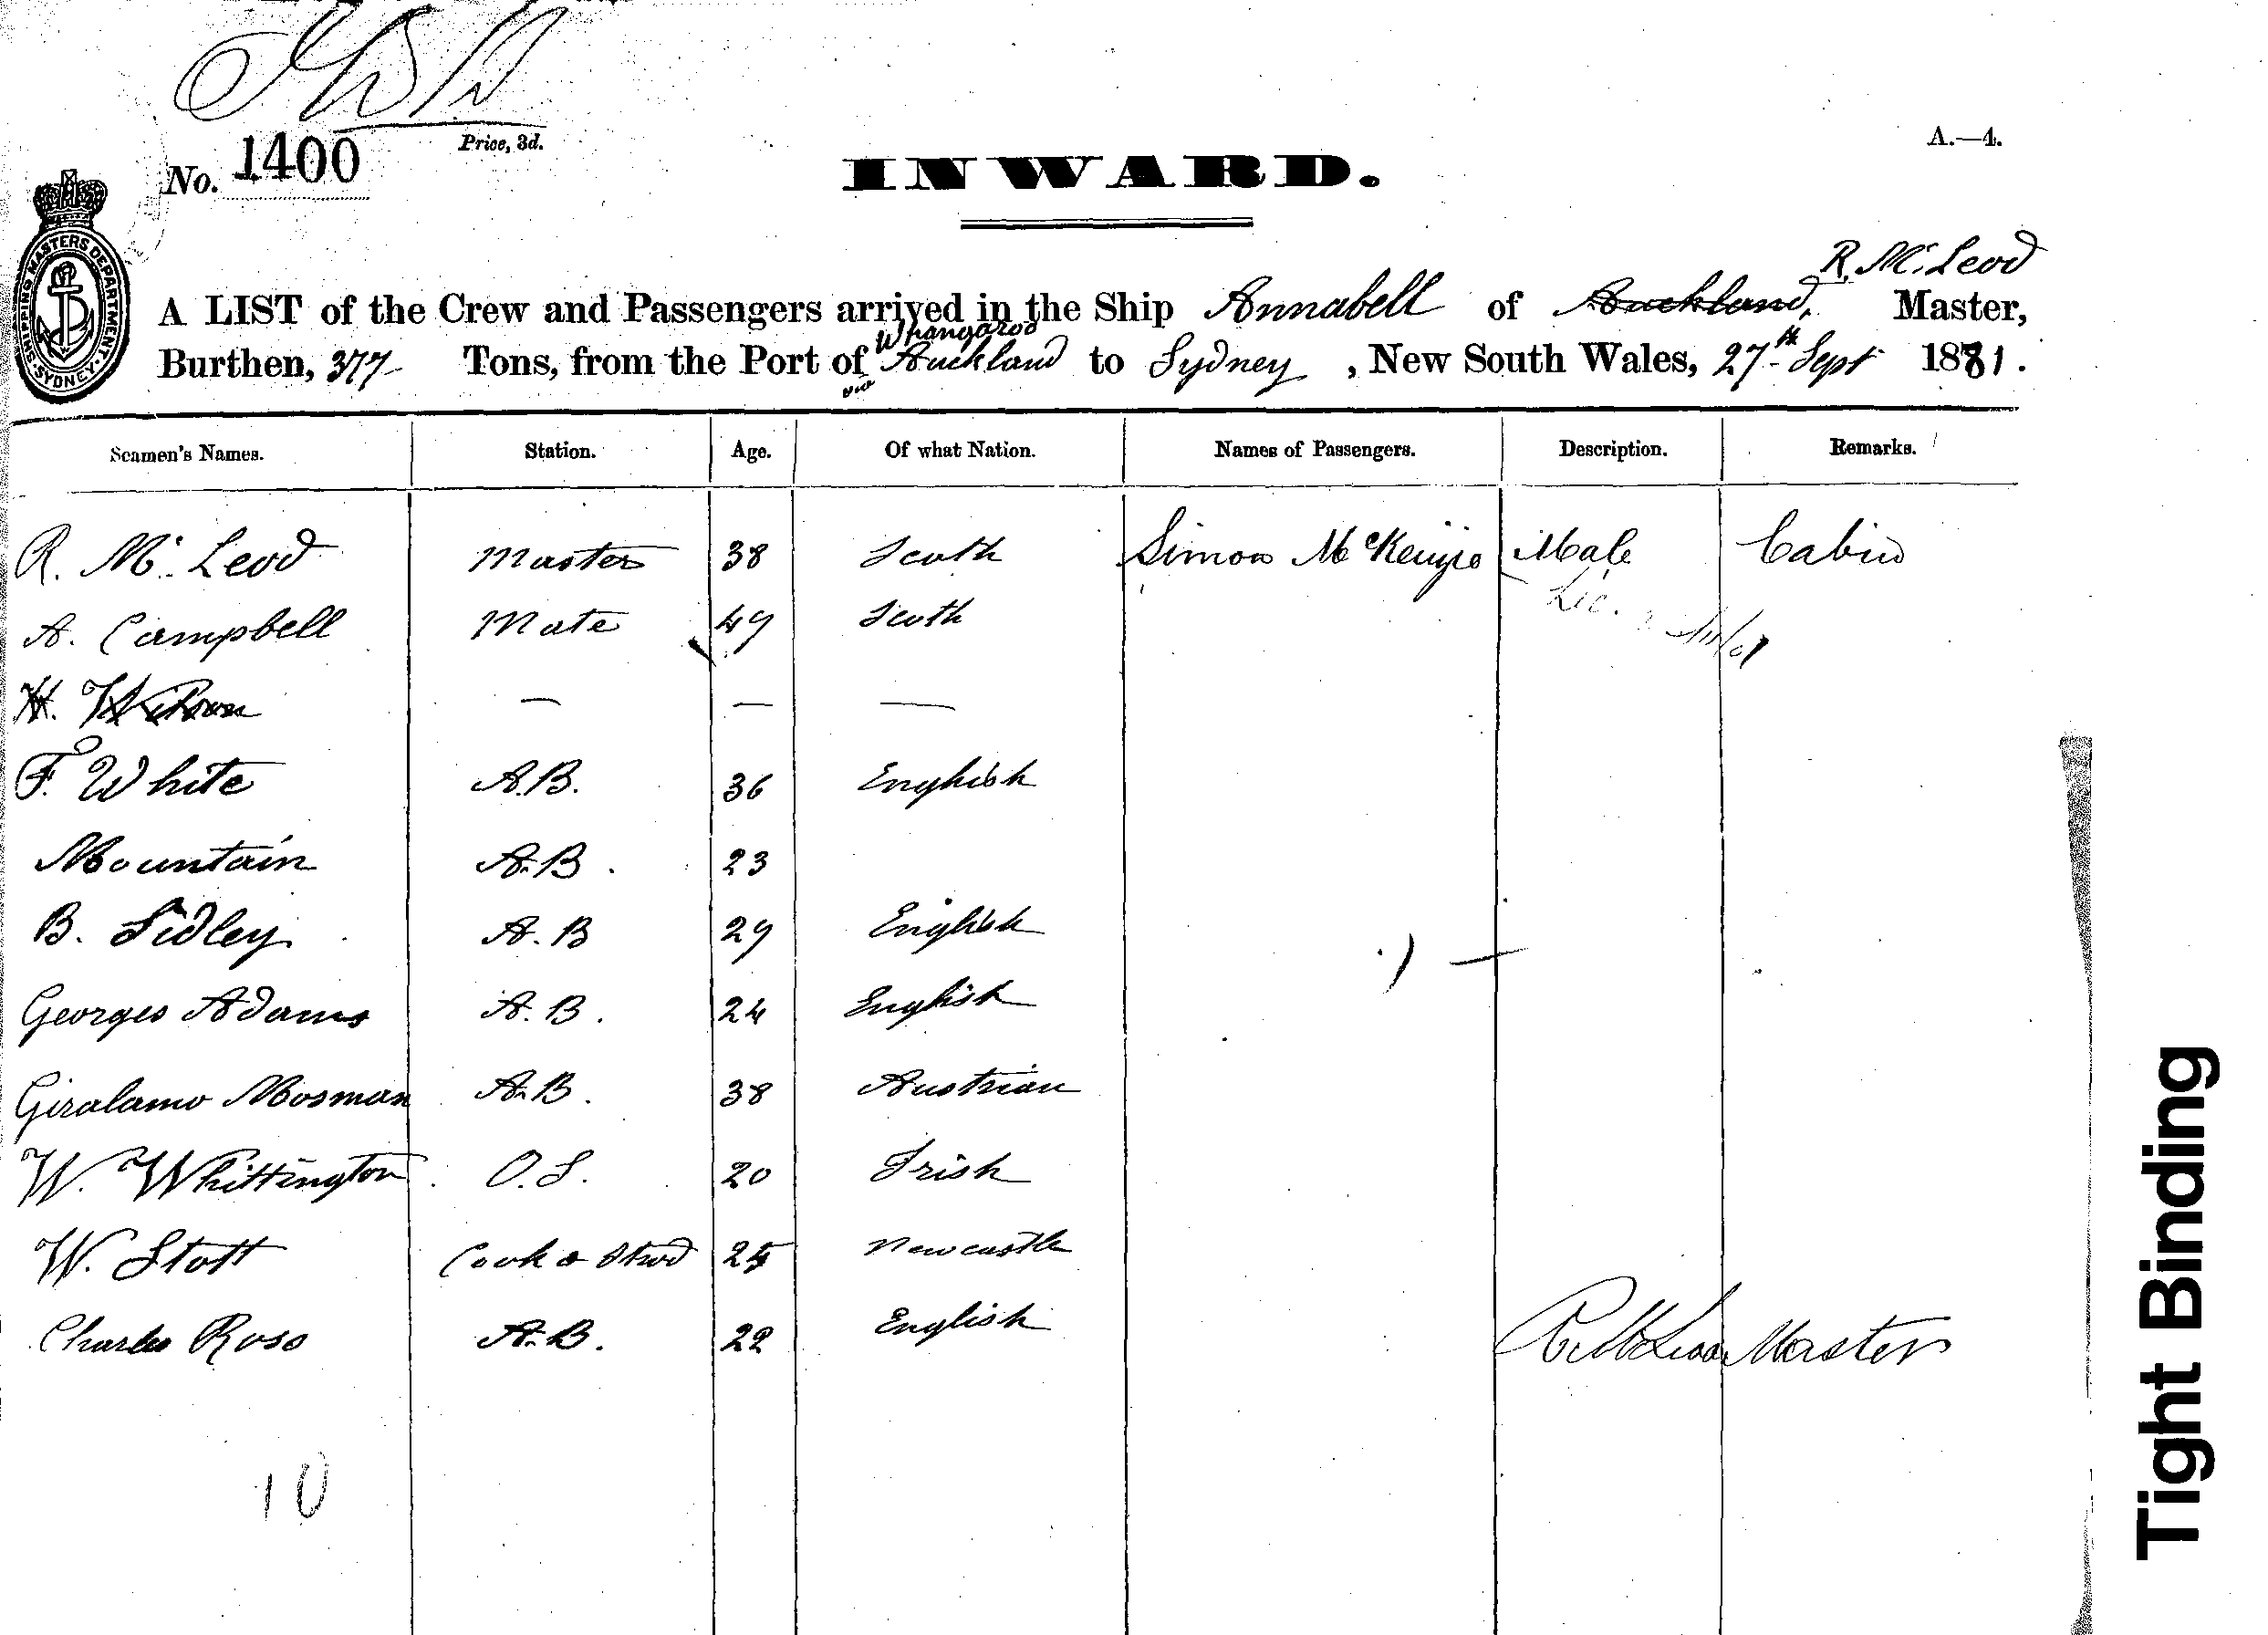 Price, 3d.
No. 1400
A.—4.
INWARD.
SHIPPING MASTERS DEPARTMENT. SYDNEY.
R. Mc. Leod
A LIST of the Crew and Passengers arrived in the Ship Annabell of Auckland, Master,
Whangaroa
Burthen, 377 Tons, from the Port of Auckland to Sydney, New South Wales, 27th Sept 1881.
via
Seamen's Names. Station. Age. Of what Nation. Names of Passengers. Description. Remarks.
R. Mc. Leod Master 38 Scoth Simon McKenzie Male Cabin
A. Campbell Mate 49 Scoth
H. Wilson — — —
F. White A.B. 36 English
Mountain A.B. 23
B. Sidley A.B 29 English
Georges Adams A.B. 24 English
Giralamo Mosman A.B. 38 Austrian
W. Whittington O.S. 20 Irish
W. Stott Cook & Stwd 25 Newcastle
Charles Ross A.B. 22 English
R McLeod Master
10
Tight Binding